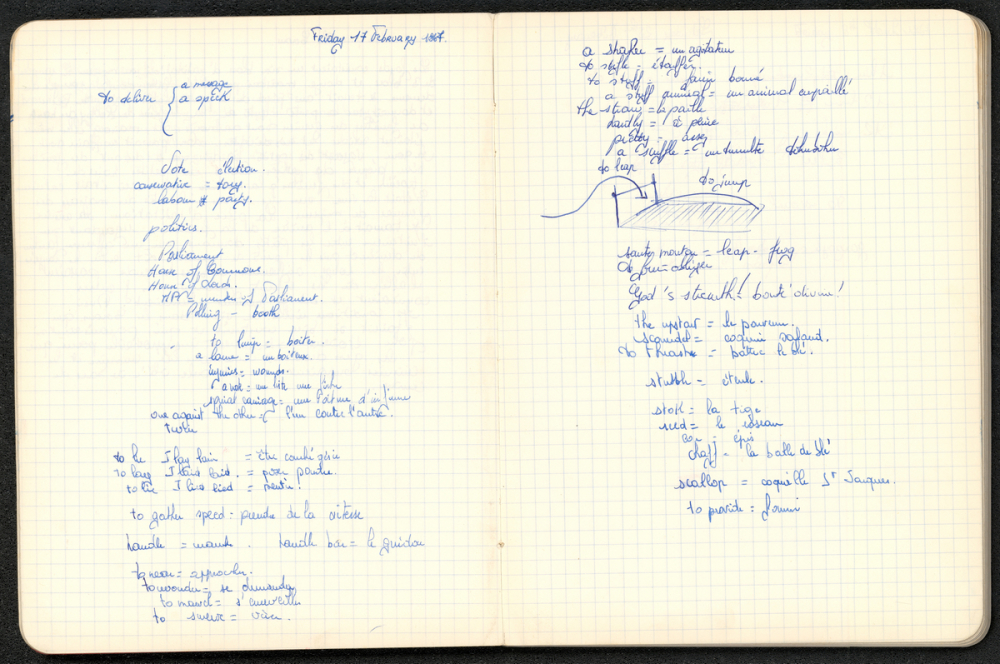 Friday 17 February
to deliver { a message
a speech
Vote élection.
conservative = tory.
labour party.
politics.
Parliament
House of Commons.
House of Lords.
MP = member of Parliament.
Polling - booth
to limp = boiter.
a lame = un boiteux.
injuries = wounds.
invalid carriage = une voiture d'infirme
one against the other = l'un contre l'autre.
to lie I lay lain = être couché gésir
to lay I laid laid = poser pondre.
to lie I lied lied = mentir.
to gather speed = prendre de la vitesse
handle = manche. handle bar = le guidon
to near = approcher.
to wonder = se demander
to marvel = s'émerveiller
to swerve = virer.
a shaker = un agitateur
to stifle = étouffer.
to stuff = farcir bourré
a stuff animal = un animal empaillé
the straw = la paille
hardly = à peine
pretty = assez
a scuffle = un tumulte tohubohu
to leap
to jump
sauter mouton = leap-frog
God's strewth! bonté divine!
the upstart = le parvenu.
scoundrel = coquin
to thrash = battre le blé.
stubble = éteule.
stalk = la tige
reed = le roseau
ear = épis
chaff = la balle de blé
scallop = coquille St Jacques.
to provide = fournir